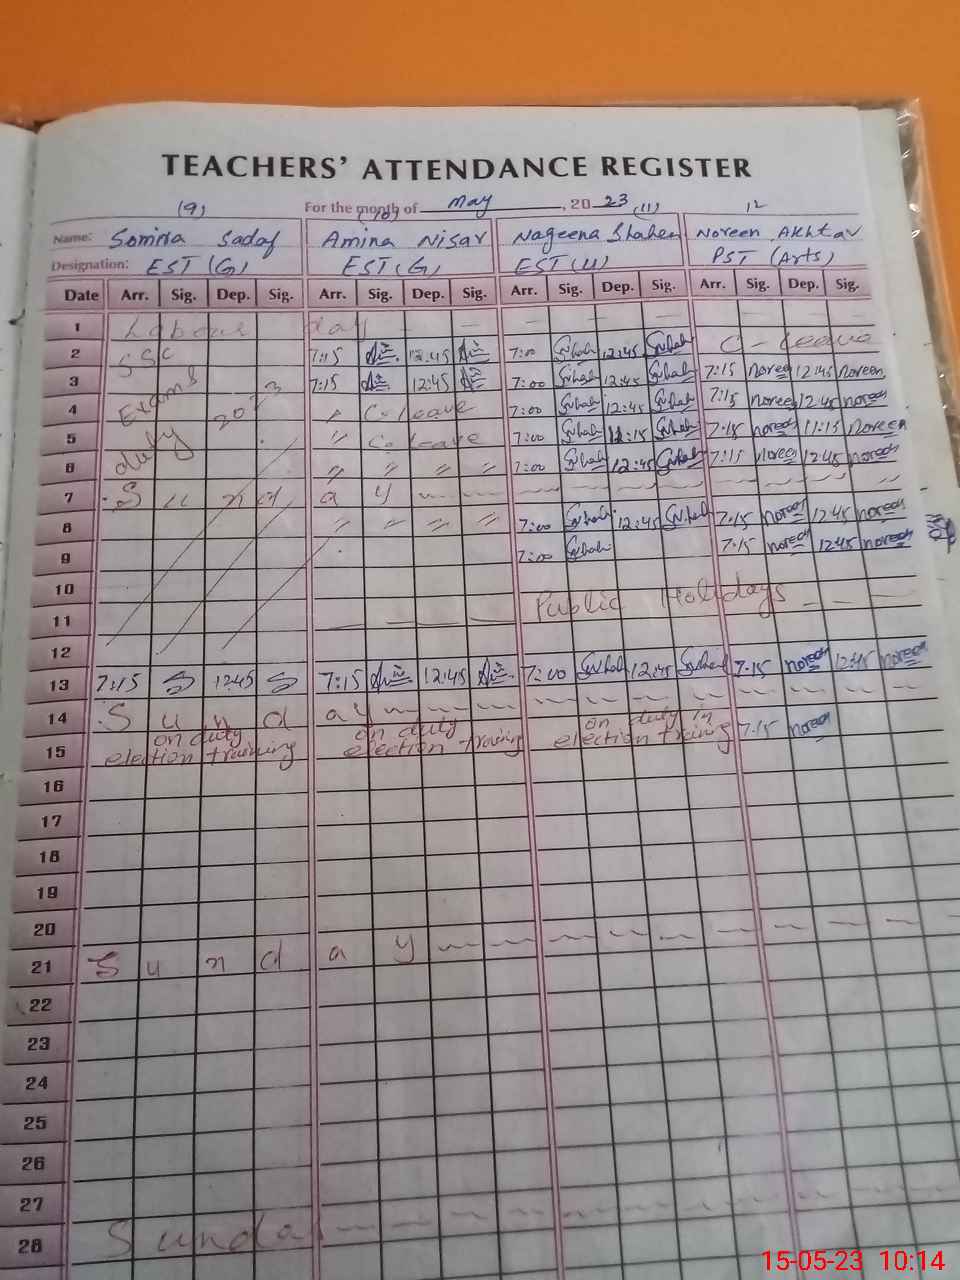 TEACHERS' ATTENDANCE REGISTER
(9) For the month of May, 2023 (10) (11) 12
Name: Somina Sadaf Amina Nisar Nageena Shaheen Noreen Akhtar
Designation: EST (G) EST (G) EST (U) PST (Arts)
Date Arr. Sig. Dep. Sig. Arr. Sig. Dep. Sig. Arr. Sig. Dep. Sig. Arr. Sig. Dep. Sig.
1 Labour day
2 SSC 7:15 12:45 7:00 12:45 C - Leave
3 Exams 7:15 12:45 7:00 12:45 7:15 Noreen 12:45 Noreen
4 2023 C. Leave 7:00 12:45 7:15 Noreen 12:45 Noreen
5 duty " C. Leave 7:00 11:15 7:15 Noreen 11:15 Noreen
6 " " " " 7:00 12:45 7:15 Noreen 12:45 Noreen
7 Sunday
8 " " " " 7:00 12:45 7:15 Noreen 12:45 Noreen
9 7:00 7:15 Noreen 12:45 Noreen
10
11 Public Holidays
12
13 7:15 12:45 7:15 12:45 7:00 12:45 7:15 Noreen 12:45 Noreen
14 Sunday
15 on duty election training on duty election training on duty in election training 7:15 Noreen
16
17
18
19
20
21 Sunday
22
23
24
25
26
27
28 Sunday
15-05-23 10:14